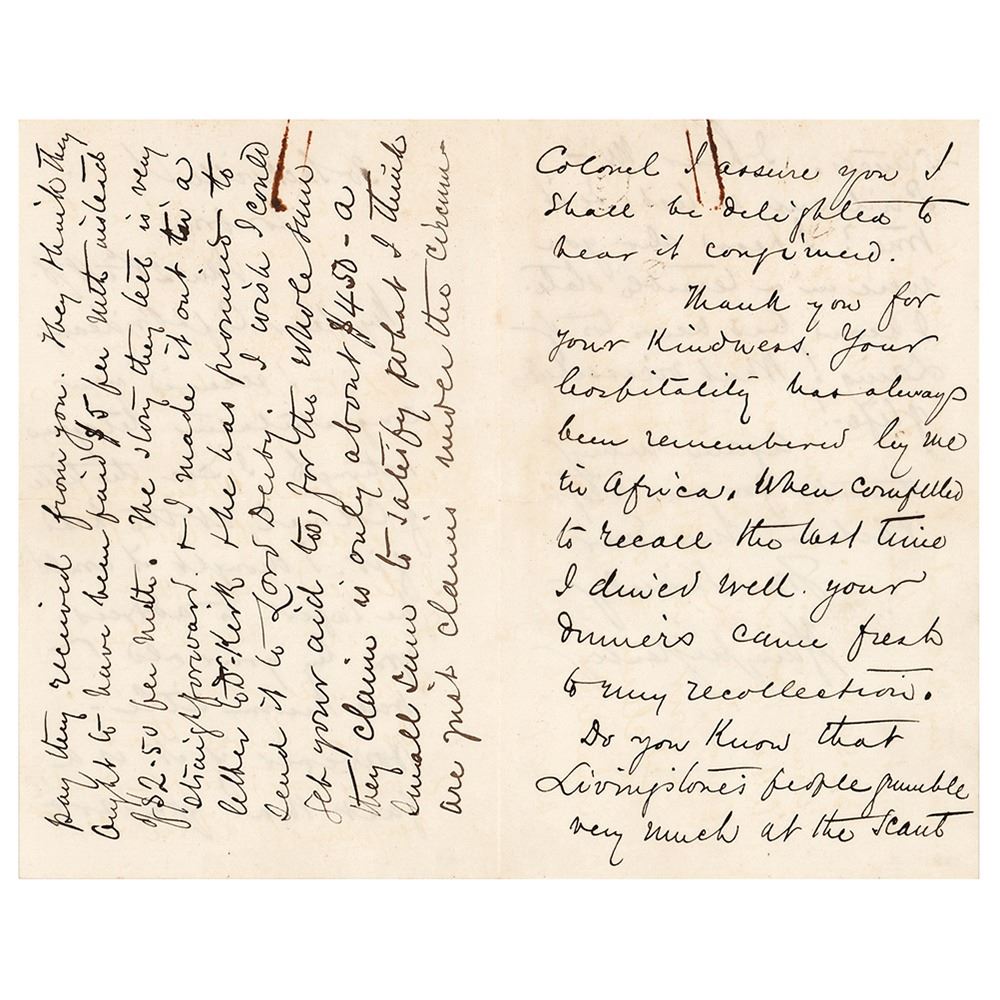 Colonel I assure you I
shall be delighted to
hear it confirmed.
Thank you for
your kindness. Your
hospitality has always
been remembered by me
in Africa. When compelled
to recall the last time
I dined well. your
dinners came fresh
to my recollection.
Do you know that
Livingstone's people grumble
very much at the scant
pay they received from you. They think they
ought to have been paid $5 per mth instead
of $2-50 per mth. The story they tell is very
straightforward. & I made it out in a
letter to Dr Kirk & he has promised to
send it to Lord Derby. I wish I could
get your aid too, for the whole sum
they claim is only about $450 - a
small sum to satisfy what I think
are just claims under the circum-